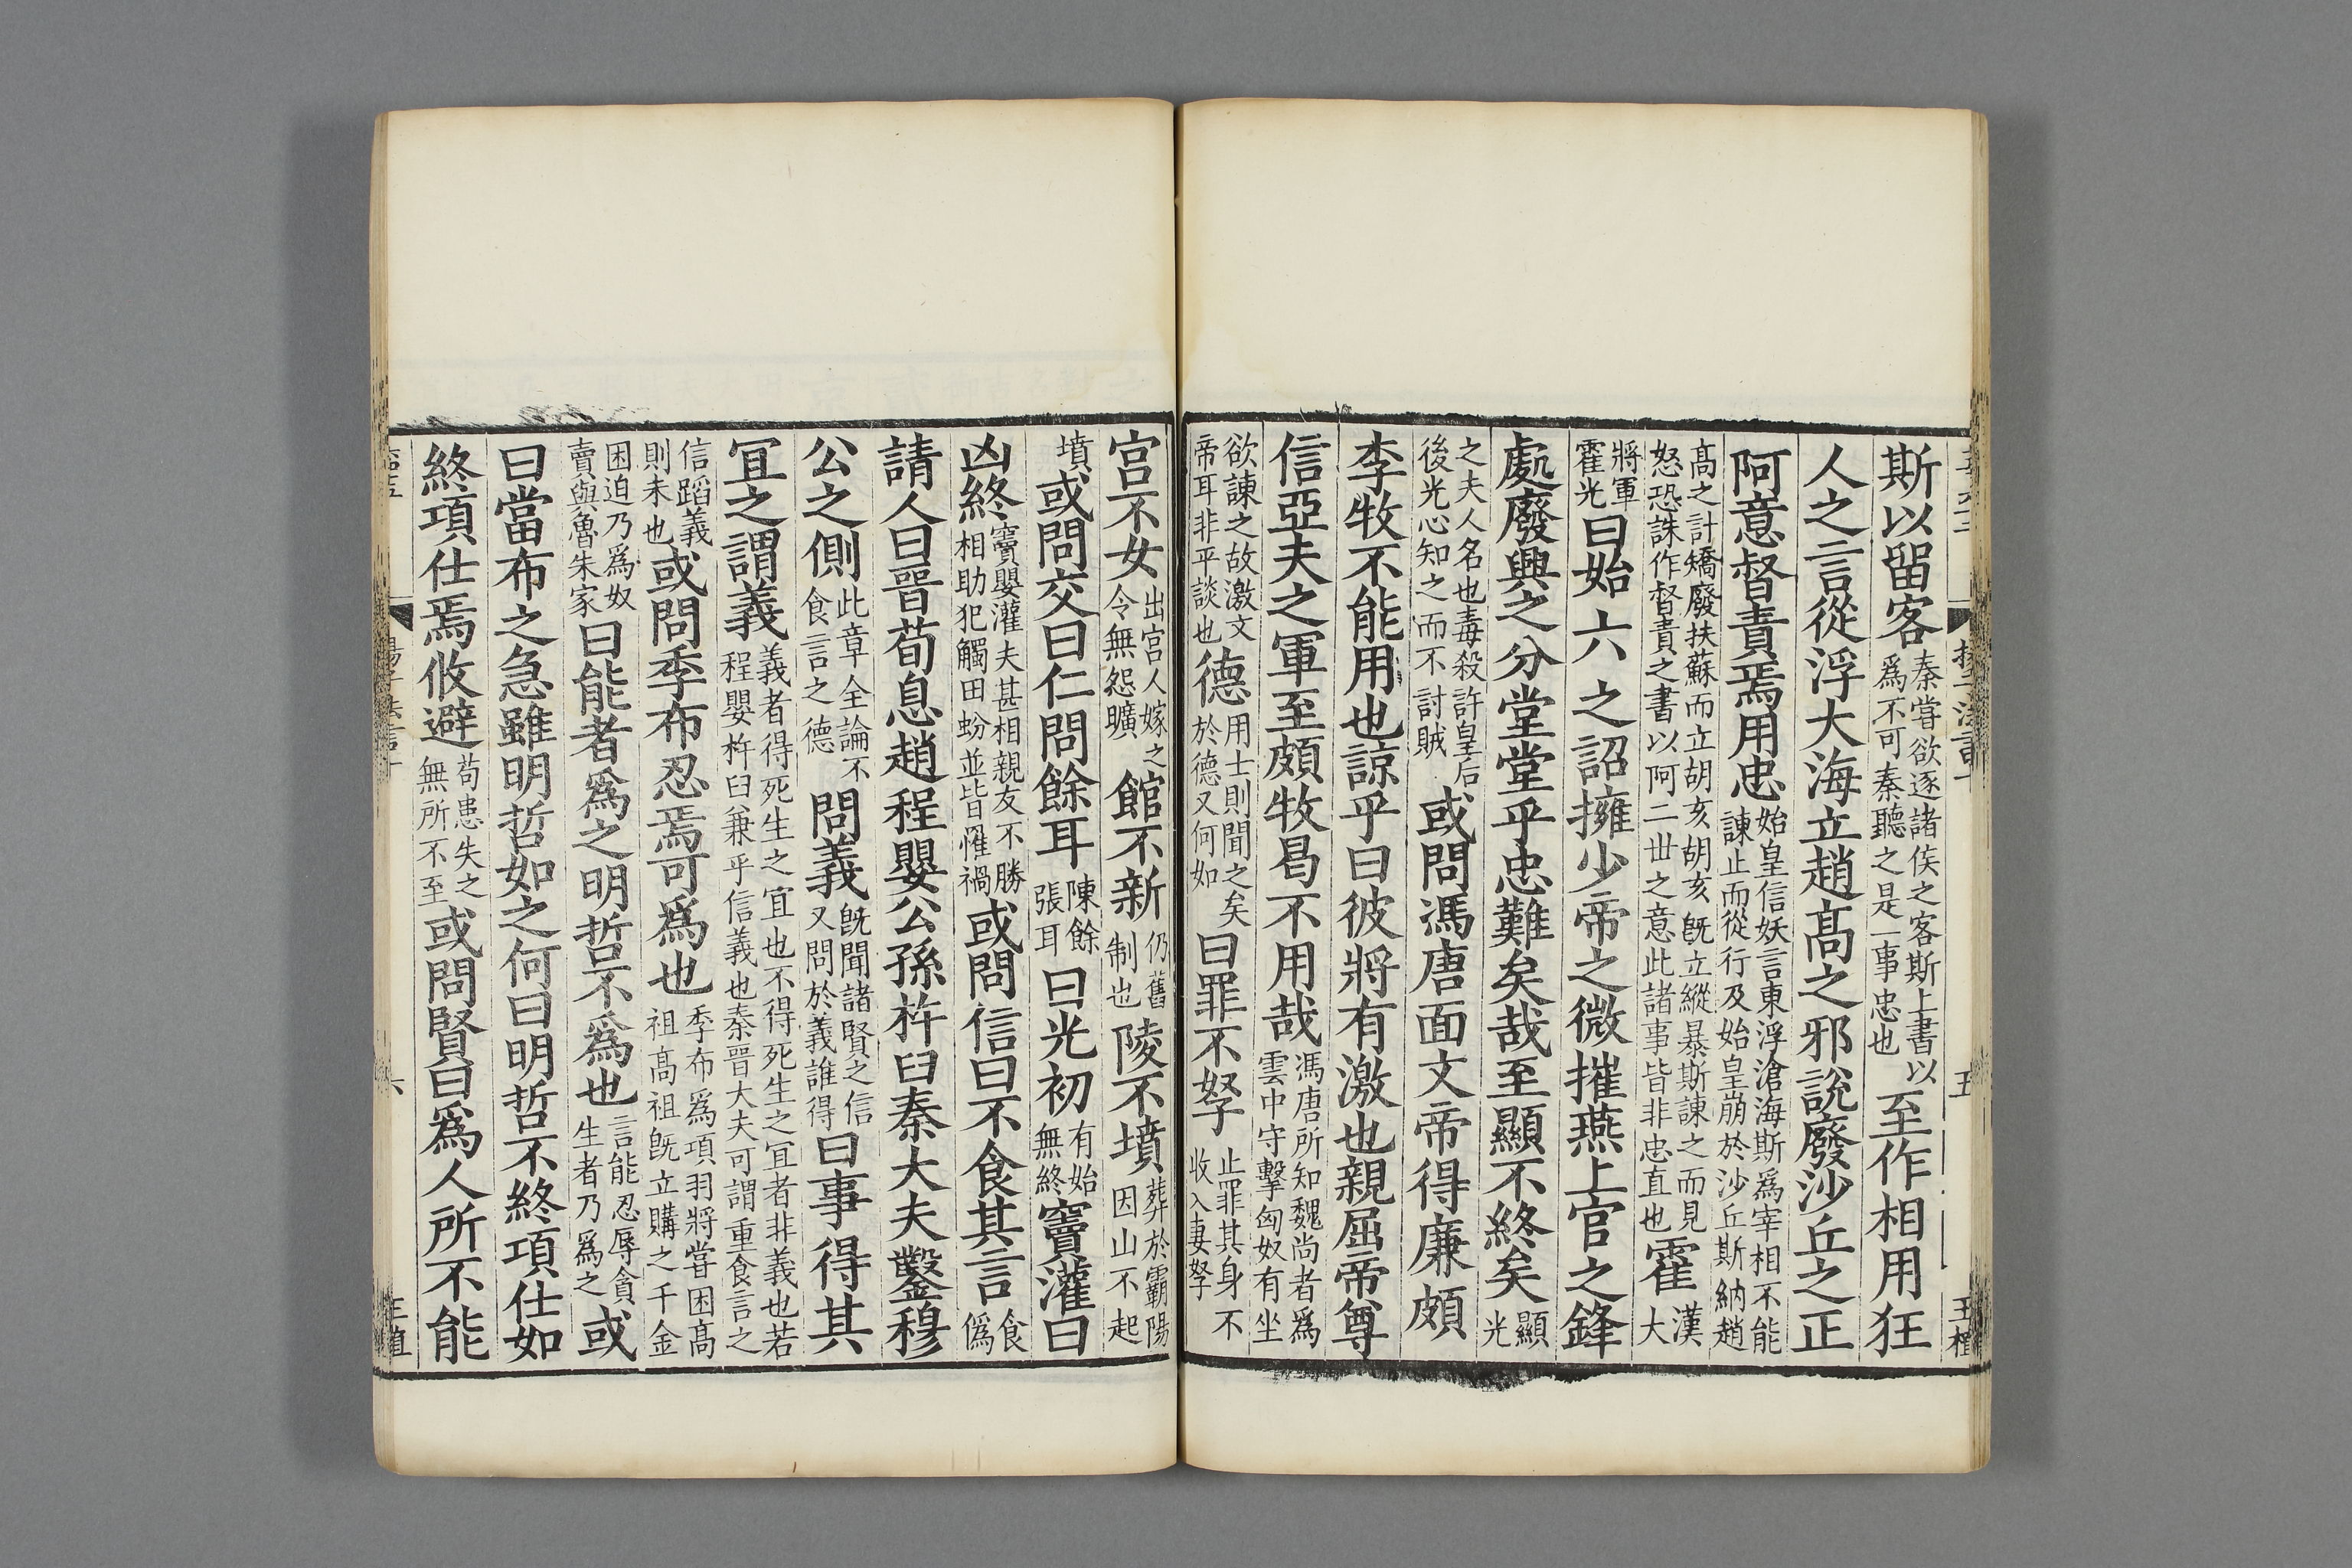 斯以留客秦嘗欲逐諸侯之客斯上書以爲不可秦聽之是一事忠也至作相用狂
人之言從浮大海立趙髙之邪說廢沙丘之正
阿意督責焉用忠始皇信妖言東浮滄海斯爲宰相不能諫止而從行及始皇崩於沙丘斯納趙
髙之計矯廢扶蘇而立胡亥胡亥旣立縱暴斯諫之而見怒恐誅作督責之書以阿二丗之意此諸事皆非忠直也霍漢大
將軍霍光曰始六之詔擁少帝之微摧燕上官之鋒
處廢興之分堂堂乎忠難矣哉至顯不終矣顯光
之夫人名也毒殺許皇后後光心知之而不討賊或問馮唐面文帝得廉頗
李牧不能用也諒乎曰彼將有激也親屈帝尊
信亞夫之軍至頗牧曷不用哉馮唐所知魏尚者爲雲中守擊匈奴有坐
欲諫之故激文帝耳非平談也德用士則聞之矣於德又何如曰罪不孥止罪其身不收入妻孥
宫不女出宫人嫁之令無怨曠館不新仍舊制也陵不墳葬於霸陽因山不起
墳或問交曰仁問餘耳陳餘張耳曰光初有始無終竇灌曰
凶終竇嬰灌夫甚相親友不勝相助犯觸田蚡並皆罹禍或問信曰不食其言食僞
請人曰晉荀息趙程嬰公孫杵臼秦大夫鑿穆
公之側此章全論不食言之德問義旣聞諸賢之信又問於義誰得曰事得其
冝之謂義義者得死生之冝也不得死生之冝者非義也若程嬰杵臼兼乎信義也秦晉大夫可謂重食言之
信蹈義則未也或問季布忍焉可爲也季布爲項羽將嘗困髙祖髙祖旣立購之千金
困迫乃爲奴賣與魯朱家曰能者爲之明哲不爲也言能忍辱貪生者乃爲之或
曰當布之急雖明哲如之何曰明哲不終項仕如
終項仕焉攸避苟患失之無所不至或問賢曰爲人所不能